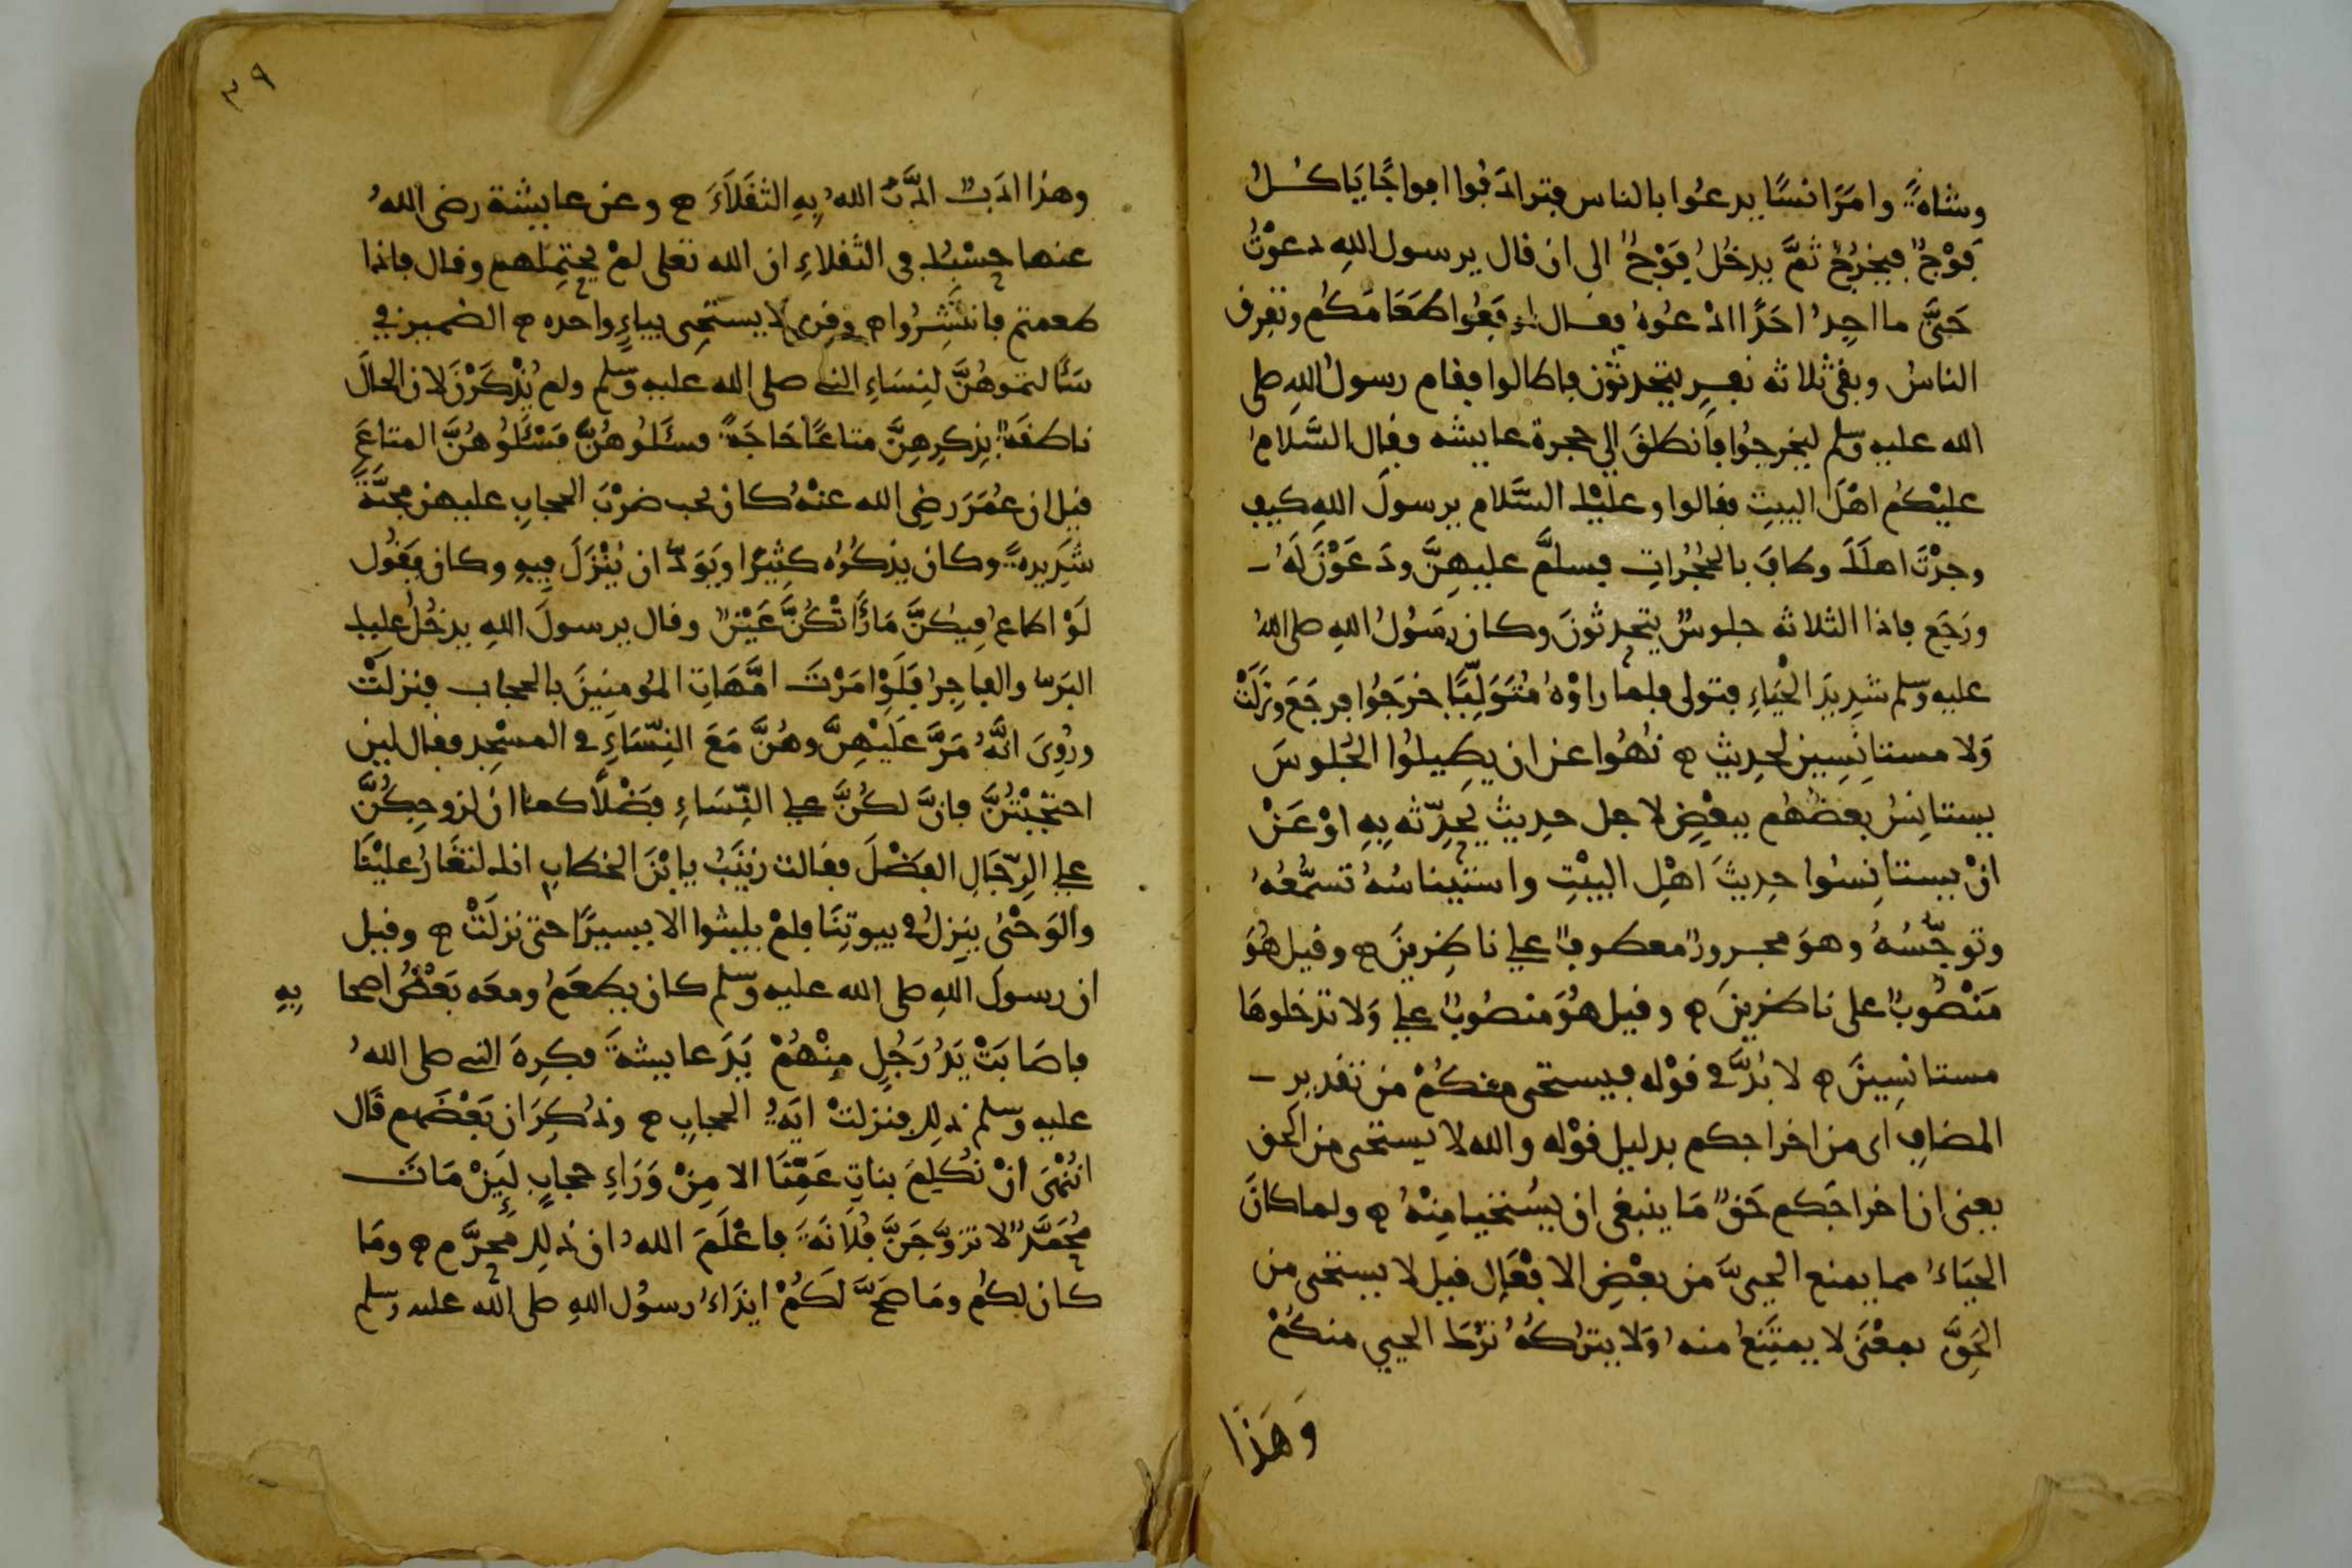 وشاةً وامَرَ انسًا يدعُوا بالناس فترادَفُوا افواجًا يَاكُلُ
فَوْجٌ فيخرُجُ ثمَّ يدخُلُ فَوْجٌ الى ان قال يرسول اللهِ دعوْتُ
حَتَّى ما اجِدُ احَدًا ادْعُوهُ فقال ارفَعُوا طَعَامَكُم وتفرق
الناسُ وبقىَ ثلاثه نفَرٍ يتحدثون فاطالوا فقام رسولُ اللهِ صلى
الله عليه وسلم ليخرجُوا فانطلقَ الى حجرة عايشه فقال السَّلامُ
عليْكُم اهْلَ البيتِ فقالوا وعليْك السَّلام يرسولَ اللهِ كيف
وجدْتَ اهلَكَ وطافَ بالحُجُراتِ فسلَّمَ عليهِنَّ ودَعَوْنَ لَهُ
ورَجَع فاذا الثلاثه جلوسٌ يتحدثونَ وكان رسُولُ اللهِ صلى اللهُ
عليه وسلم شدِيدَ الحَيَاءِ فتولى فلما راوْهُ مُتَوَلِّيًا خرَجُوا فرجَعَ ونَزَلَتْ
وَلا مستانِسِين لحدِيثٍ ۝ نُهُوا عن ان يطِيلُوا الجُلوسَ
يستانِسُ بعضُهُم ببعْضٍ لاجل حدِيثٍ يُحدِّثه بِهِ اوْ عَنْ
انْ يستانِسُوا حدِيثَ اهْلِ البيْتِ واستيناسُهُ تسمُّعُهُ
وتوجُّسُهُ وهوَ مجرورٌ معطوفٌ على ناظِرِينَ ۝ وقيل هُوَ
مَنْصُوبٌ على ناظرِينَ ۝ وقيل هُوَ منصُوبٌ على وَلا تدخلوهَا
مستانِسِينَ ۝ لا بُدَّ فى قوْله فيستحى منكُمْ من تقدير
المضافِ اى من اخراجكم بدليل قوْله والله لا يستحى من الحق
يعنى ان اخراجَكم حَقٌ مَا ينبغى ان يُستحيا مِنْهُ ۝ ولما كانَ
الحيَاءُ مما يمنع الحيىَّ من بعْضِ الافعَالِ قيل لا يستحى من
الحَقِّ بمعْنَى لا يمتَنِعُ منه وَلا يترُكُهُ ترْكَ الحيي منكُمْ
وَهَذَا
٣٩
وهذا ادَبٌ ادَّبَ اللهُ بِهِ الثقَلَاءَ ۝ وعن عايشة رضى اللهُ
عنها حسْبُك فى الثقلاءِ ان الله تعلى لمْ يحتمِلهم وقال فاذا
طعمتم فانتشِرُوا ۝ وقرى لا يستحِى بياءٍ واحده ۝ الضمير فى
سَالتموهُنَّ لنِسَاءِ النبى صلى الله عليه وسلم ولم يُذْكَرْنَ لان الحالَ
ناطقَةٌ بِذكرِهِنَّ متاعًا حَاجَةً فسئَلُوهُنَّ فسْئَلُوهُنَّ المتاعَ
قيل ان عُمَرَ رضِى الله عنْهُ كان يحب ضرْبَ الحجابِ عليهن محبَّةً
شدِيدةً وكان يذكُرُه كثِيرًا ويَوَدُّ ان يُنْزَلَ فِيهِ وكان يَقُول
لَوْ اطاعُ فِيكُنَّ مَا رَأتْكُنَّ عَيْنٌ وقال يرسولَ اللهِ يدخُلُ عليك
البَرُّ والفاجِرُ فلَوْ امَرْتَ امَّهَاتِ المُومنِينَ بالحجاب فنزلَتْ
ورُوِىَ انَّهُ مَرَّ عَلَيْهِنَّ وهُنَّ مَعَ النِّسَاءِ فى المسْجِدِ فقال لين
احتجَبْتُنَّ فانَّ لكُنَّ على النِّسَاءِ فَضْلًا كما ان لزوجِكُنَّ
على الرِّجَالِ الفضْلَ فقالت زينَبُ يا بْنَ الخطابِ انك لتغَارُ عليْنَا
والوَحْىُ ينزِلُ فى بيوتِنَا فلمْ يلبثوا الا يسيرًا حتى نزلَتْ ۝ وقيل
ان رسولَ اللهِ صلى الله عليه وسلم كان يطعَمُ ومعَه بَعْضُ اصحا بِهِ
فاصَابَتْ يَدُ رَجُلٍ مِنْهُمْ يَدَ عايشةَ فكرِهَ النبى صلى اللهُ
عليه وسلم ذلِك فنزلتْ ايَةُ الحجابِ ۝ وذُكِرَ ان بَعْضَهم قَال
انُنْهَى انْ نُكلِمَ بناتِ عَمِّنَا الا مِنْ وَرَاءِ حجابٍ لَيِنْ مَاتَ
مُحَمَّدٌ لاتزوَّجَنَّ فُلَانَةَ فاعْلَمَ اللهُ ان ذلِك محرَّم ۝ ومَا
كان لكُم ومَا صَحَّ لَكُمْ ايذَاءُ رسُول اللهِ صلى الله عليه وسلم